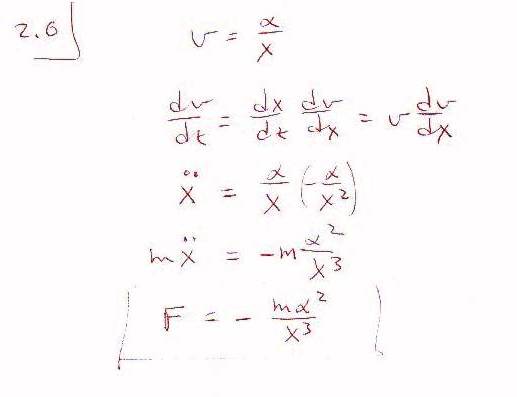 2.6
v = α/x
dv/dt = dx/dt dv/dx = v dv/dx
ẍ = α/x (-α/x²)
mẍ = -m α²/x³
F = - mα²/x³